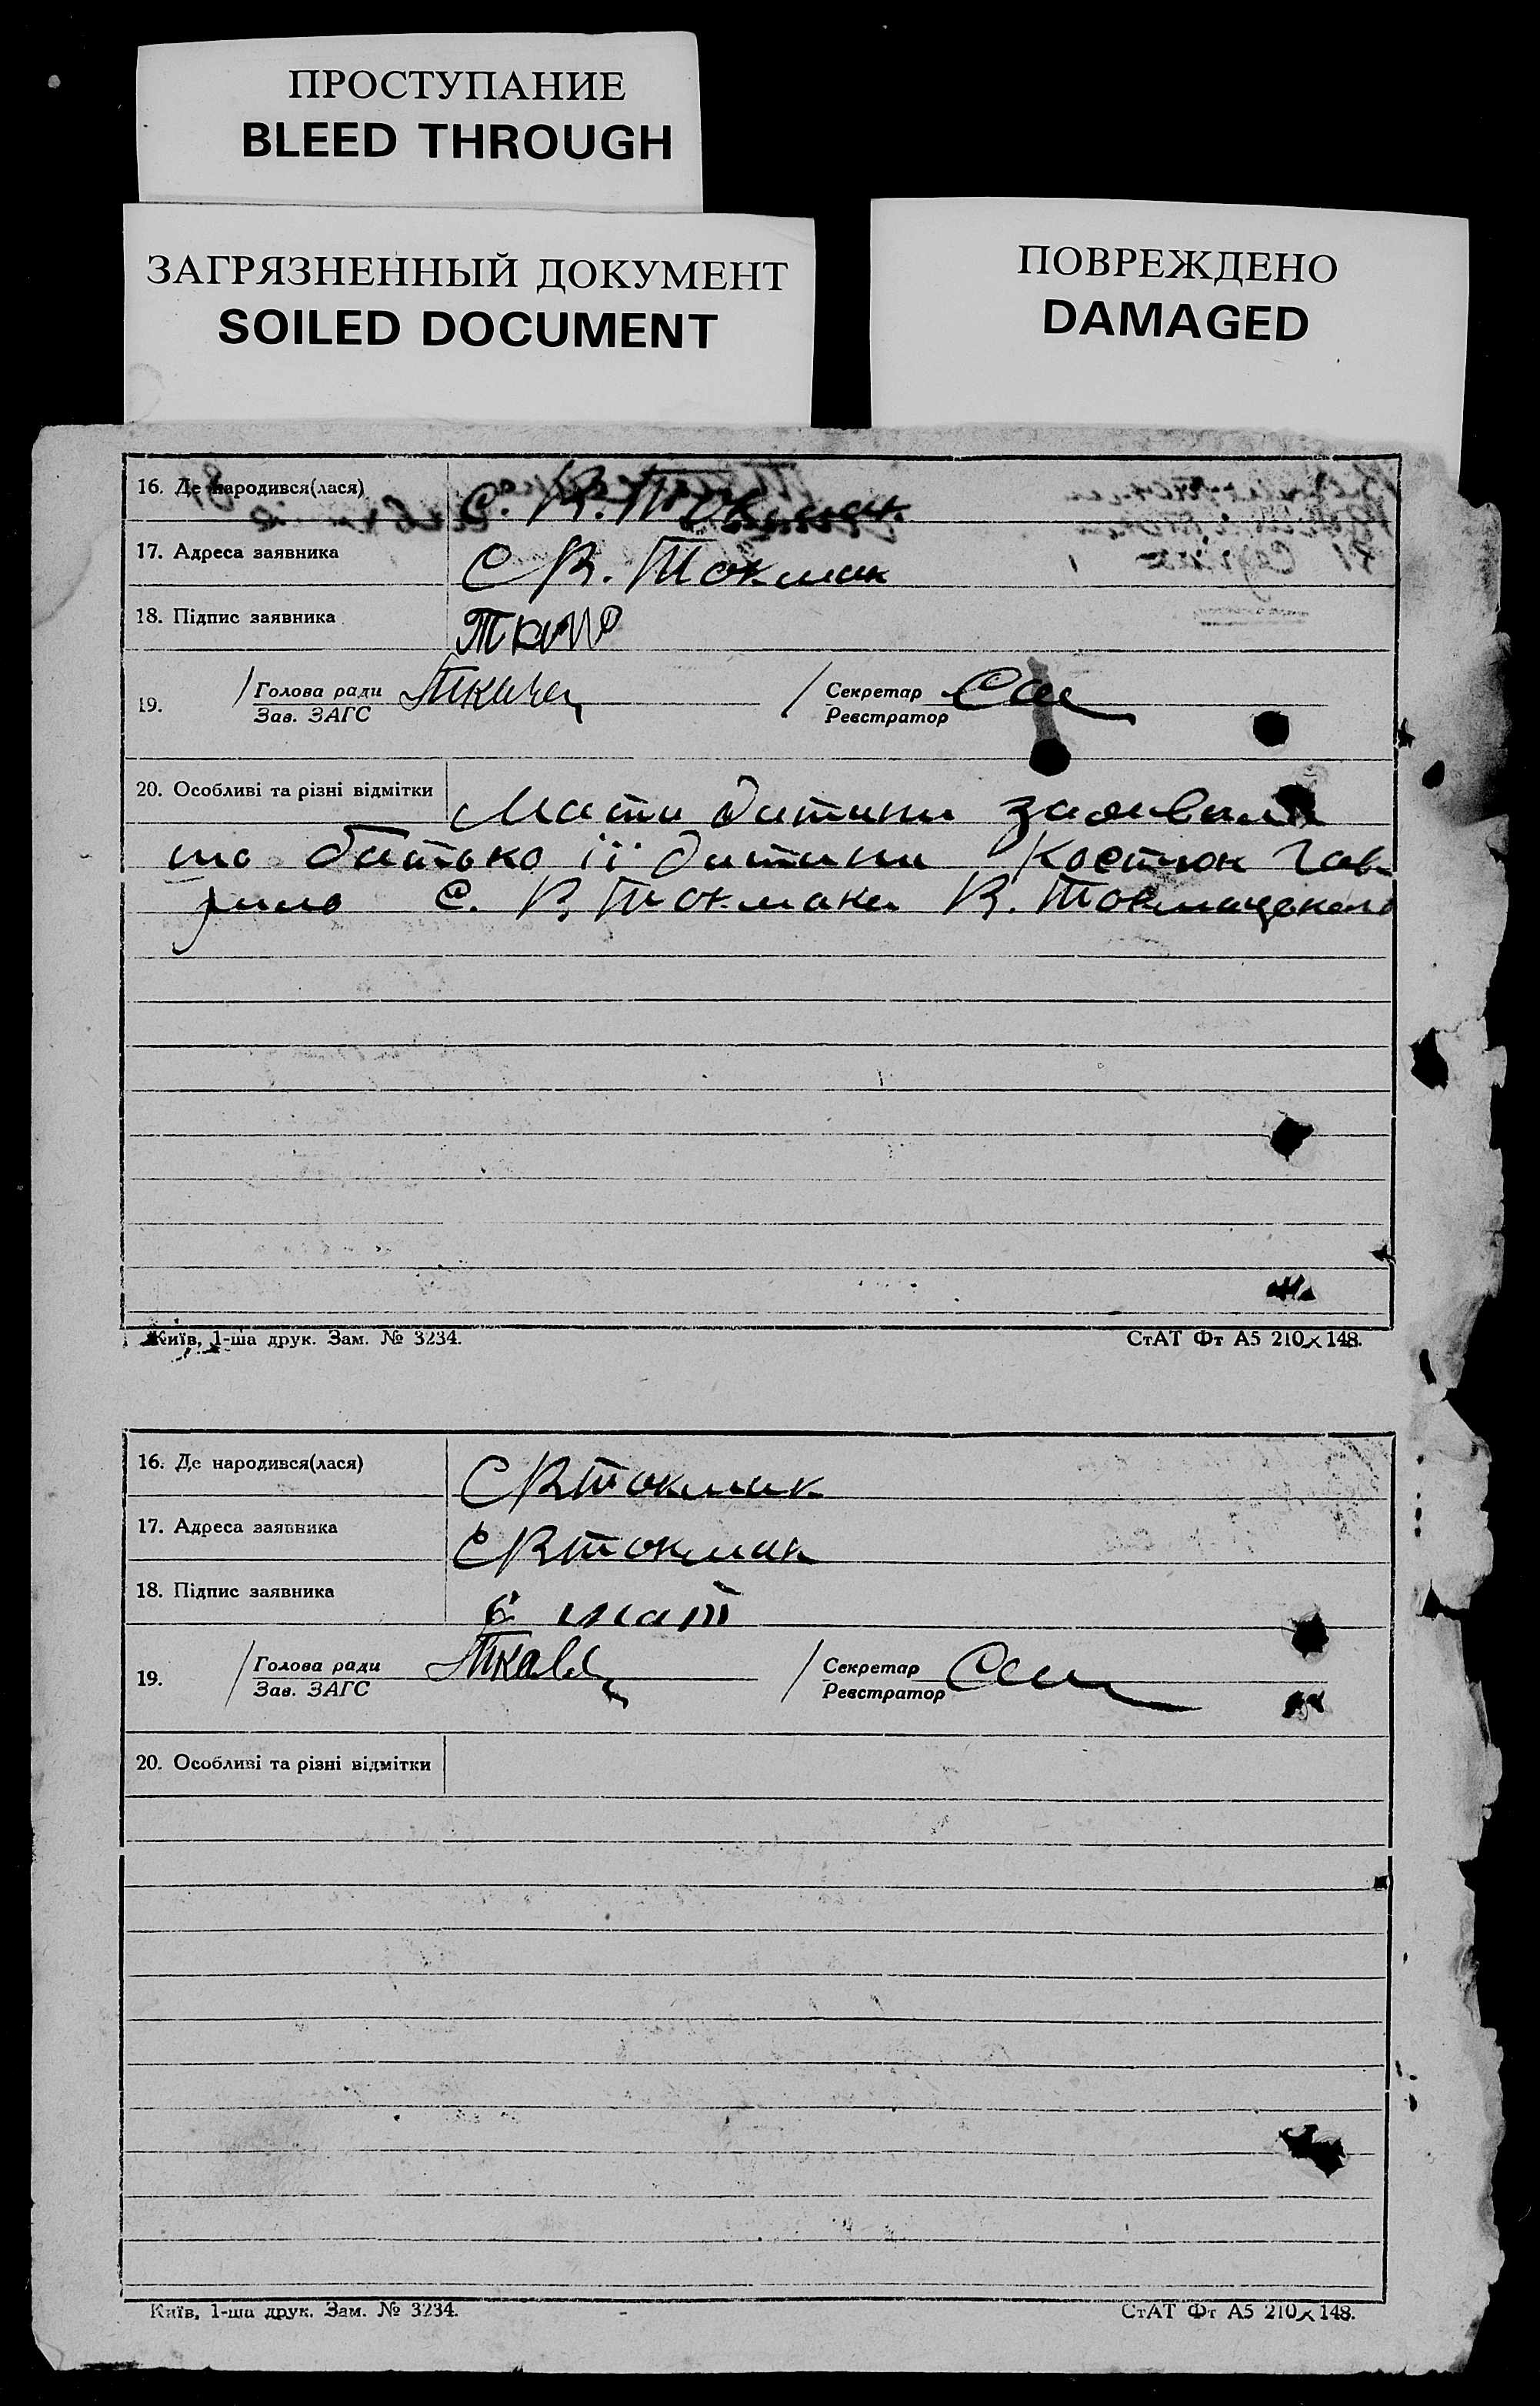 ПРОСТУПАНИЕ
BLEED THROUGH
ЗАГРЯЗНЕННЫЙ ДОКУМЕНТ
SOILED DOCUMENT
ПОВРЕЖДЕНО
DAMAGED
16. Де народився(лася) С. В. Токмак
17. Адреса заявника С В. Токмак
18. Підпис заявника
19. Голова ради Секретар
Зав. ЗАГС Реєстратор
20. Особливі та різні відмітки Мати дитини заявила
що батько її дитини Костюк Гав
рило С. В Токмака В. Токмацького
Київ, 1-ша друк. Зам. № 3234. СтАТ Фт А5 210×148.
16. Де народився(лася) С В Токмак
17. Адреса заявника С В Токмак
18. Підпис заявника
19. Голова ради Секретар
Зав. ЗАГС Реєстратор
20. Особливі та різні відмітки
Київ, 1-ша друк. Зам. № 3234. СтАТ Фт А5 210×148.